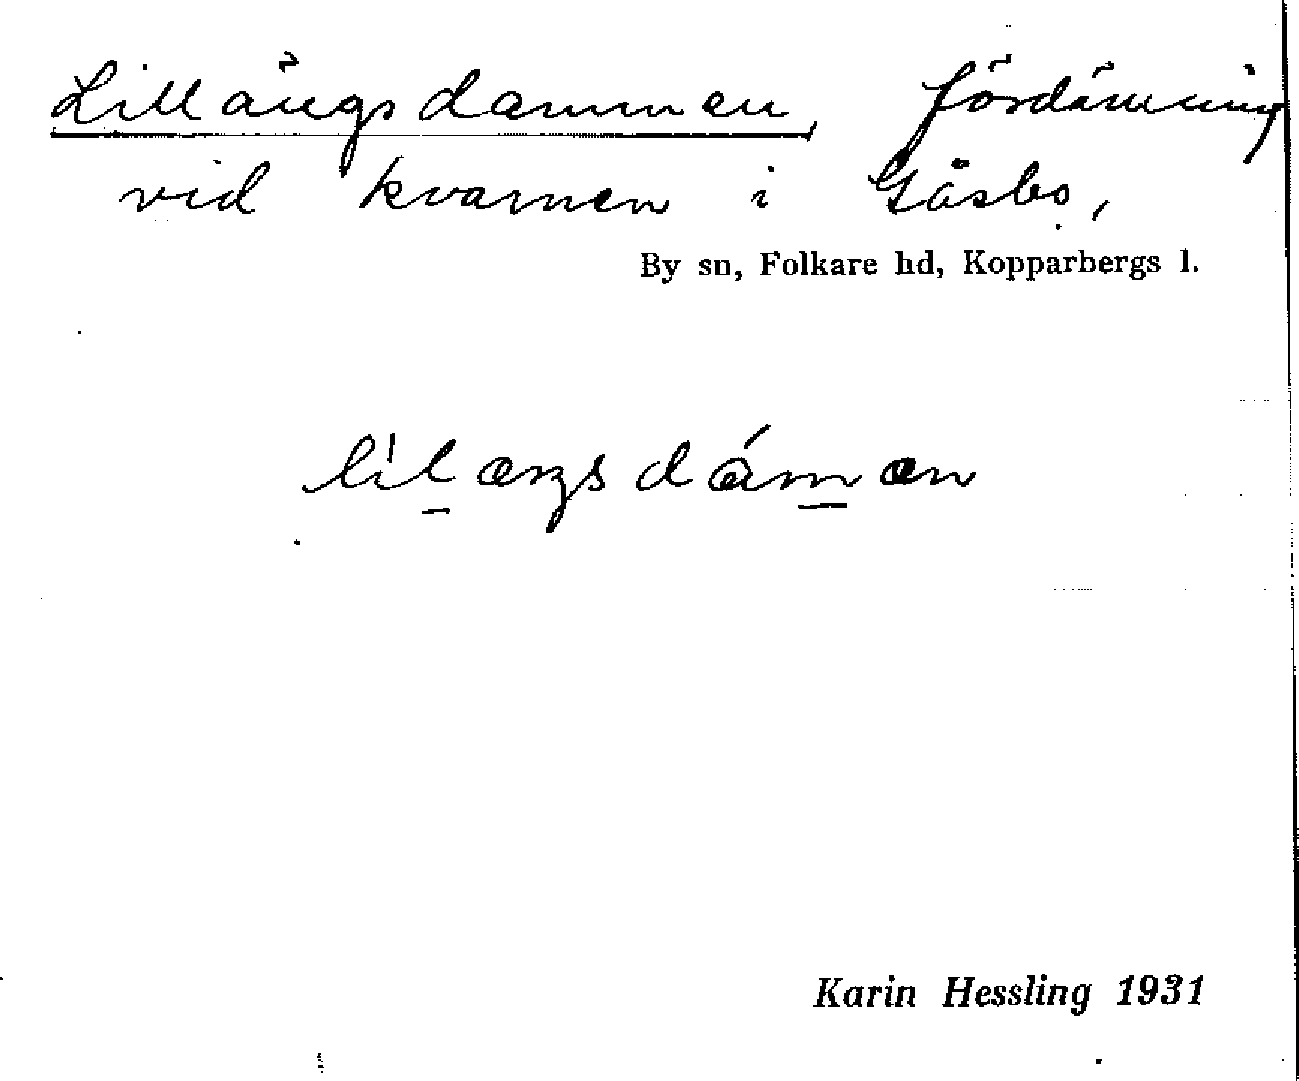 Lillängsdammen, fördämning
vid kvarnen i Gåsbo,
By sn, Folkare hd, Kopparbergs l.
Karin Hessling 1931